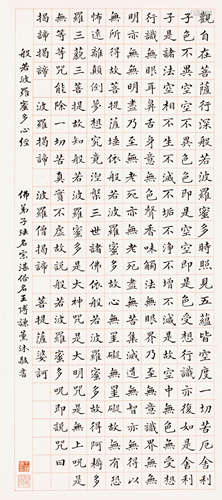 觀自在菩薩行深般若波羅蜜多時照見五蘊皆空度一切苦厄舍利
子色不異空空不異色色即是空空即是色受想行識亦復如是舍利
子是諸法空相不生不滅不垢不淨不增不減是故空中無色無受想
行識無眼耳鼻舌身意無色聲香味觸法無眼界乃至無意識界無無
明亦無無明盡乃至無老死亦無老死盡無苦集滅道無智亦無得以
無所得故菩提薩埵依般若波羅蜜多故心無罣礙無罣礙故無有恐
怖遠離顛倒夢想究竟涅槃三世諸佛依般若波羅蜜多故得阿耨多
羅三藐三菩提故知般若波羅蜜多是大神咒是大明咒是無上咒是
無等等咒能除一切苦真實不虛故說般若波羅蜜多咒即說咒曰
揭諦揭諦 波羅揭諦 波羅僧揭諦 菩提薩婆訶
般若波羅蜜多心經
佛弟子法名宗湛俗名王博謙薰沐敬書